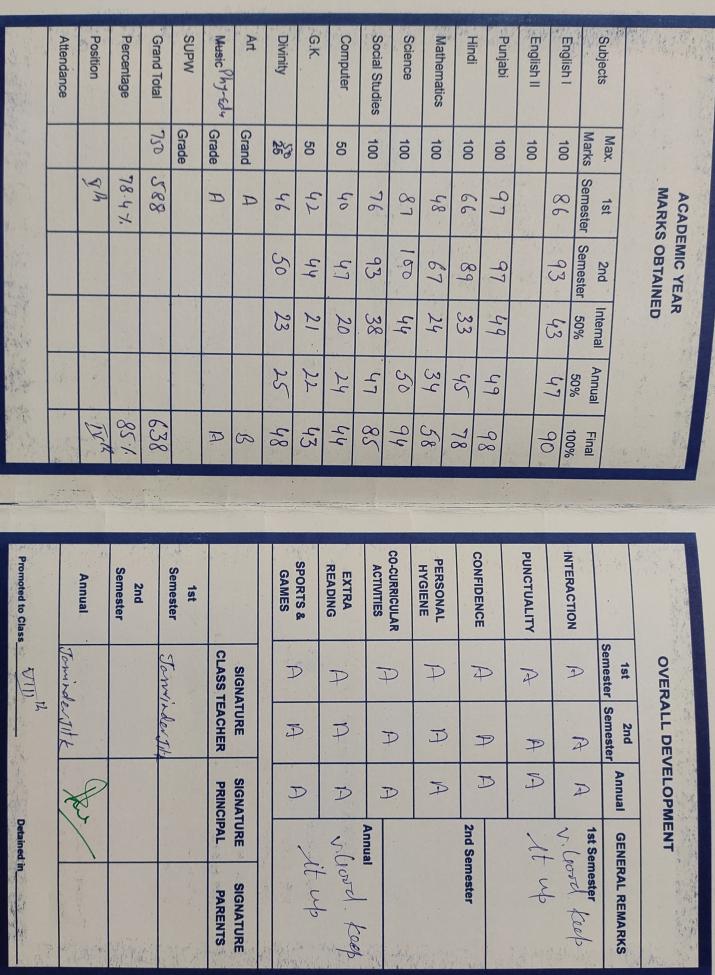 ACADEMIC YEAR
MARKS OBTAINED
Subjects Max. Marks 1st Semester 2nd Semester Internal 50% Annual 50% Final 100%
English I 100 86 93 43 47 90
English II 100
Punjabi 100 97 97 49 49 98
Hindi 100 66 89 33 45 78
Mathematics 100 48 67 24 34 58
Science 100 87 100 44 50 94
Social Studies 100 76 93 38 47 85
Computer 50 40 47 20 24 44
G.K. 50 42 44 21 22 43
Divinity 50 46 50 23 25 48
Art Grand A B
Music Phy-edu Grade A A
SUPW Grade
Grand Total 750 588 638
Percentage 78.4% 85%
Position IVth
Attendance
OVERALL DEVELOPMENT
1st Semester 2nd Semester Annual GENERAL REMARKS
INTERACTION A A A 1st Semester
V. Good keep
PUNCTUALITY A A A It up
CONFIDENCE A A A 2nd Semester
PERSONAL HYGIENE A A A
CO-CURRICULAR ACTIVITIES A A A
EXTRA READING A A A Annual
V. Good. keep
SPORTS & GAMES A A A It up
SIGNATURE CLASS TEACHER SIGNATURE PRINCIPAL SIGNATURE PARENTS
1st Semester
2nd Semester
Annual
Promoted to Class VIIIth Detained in